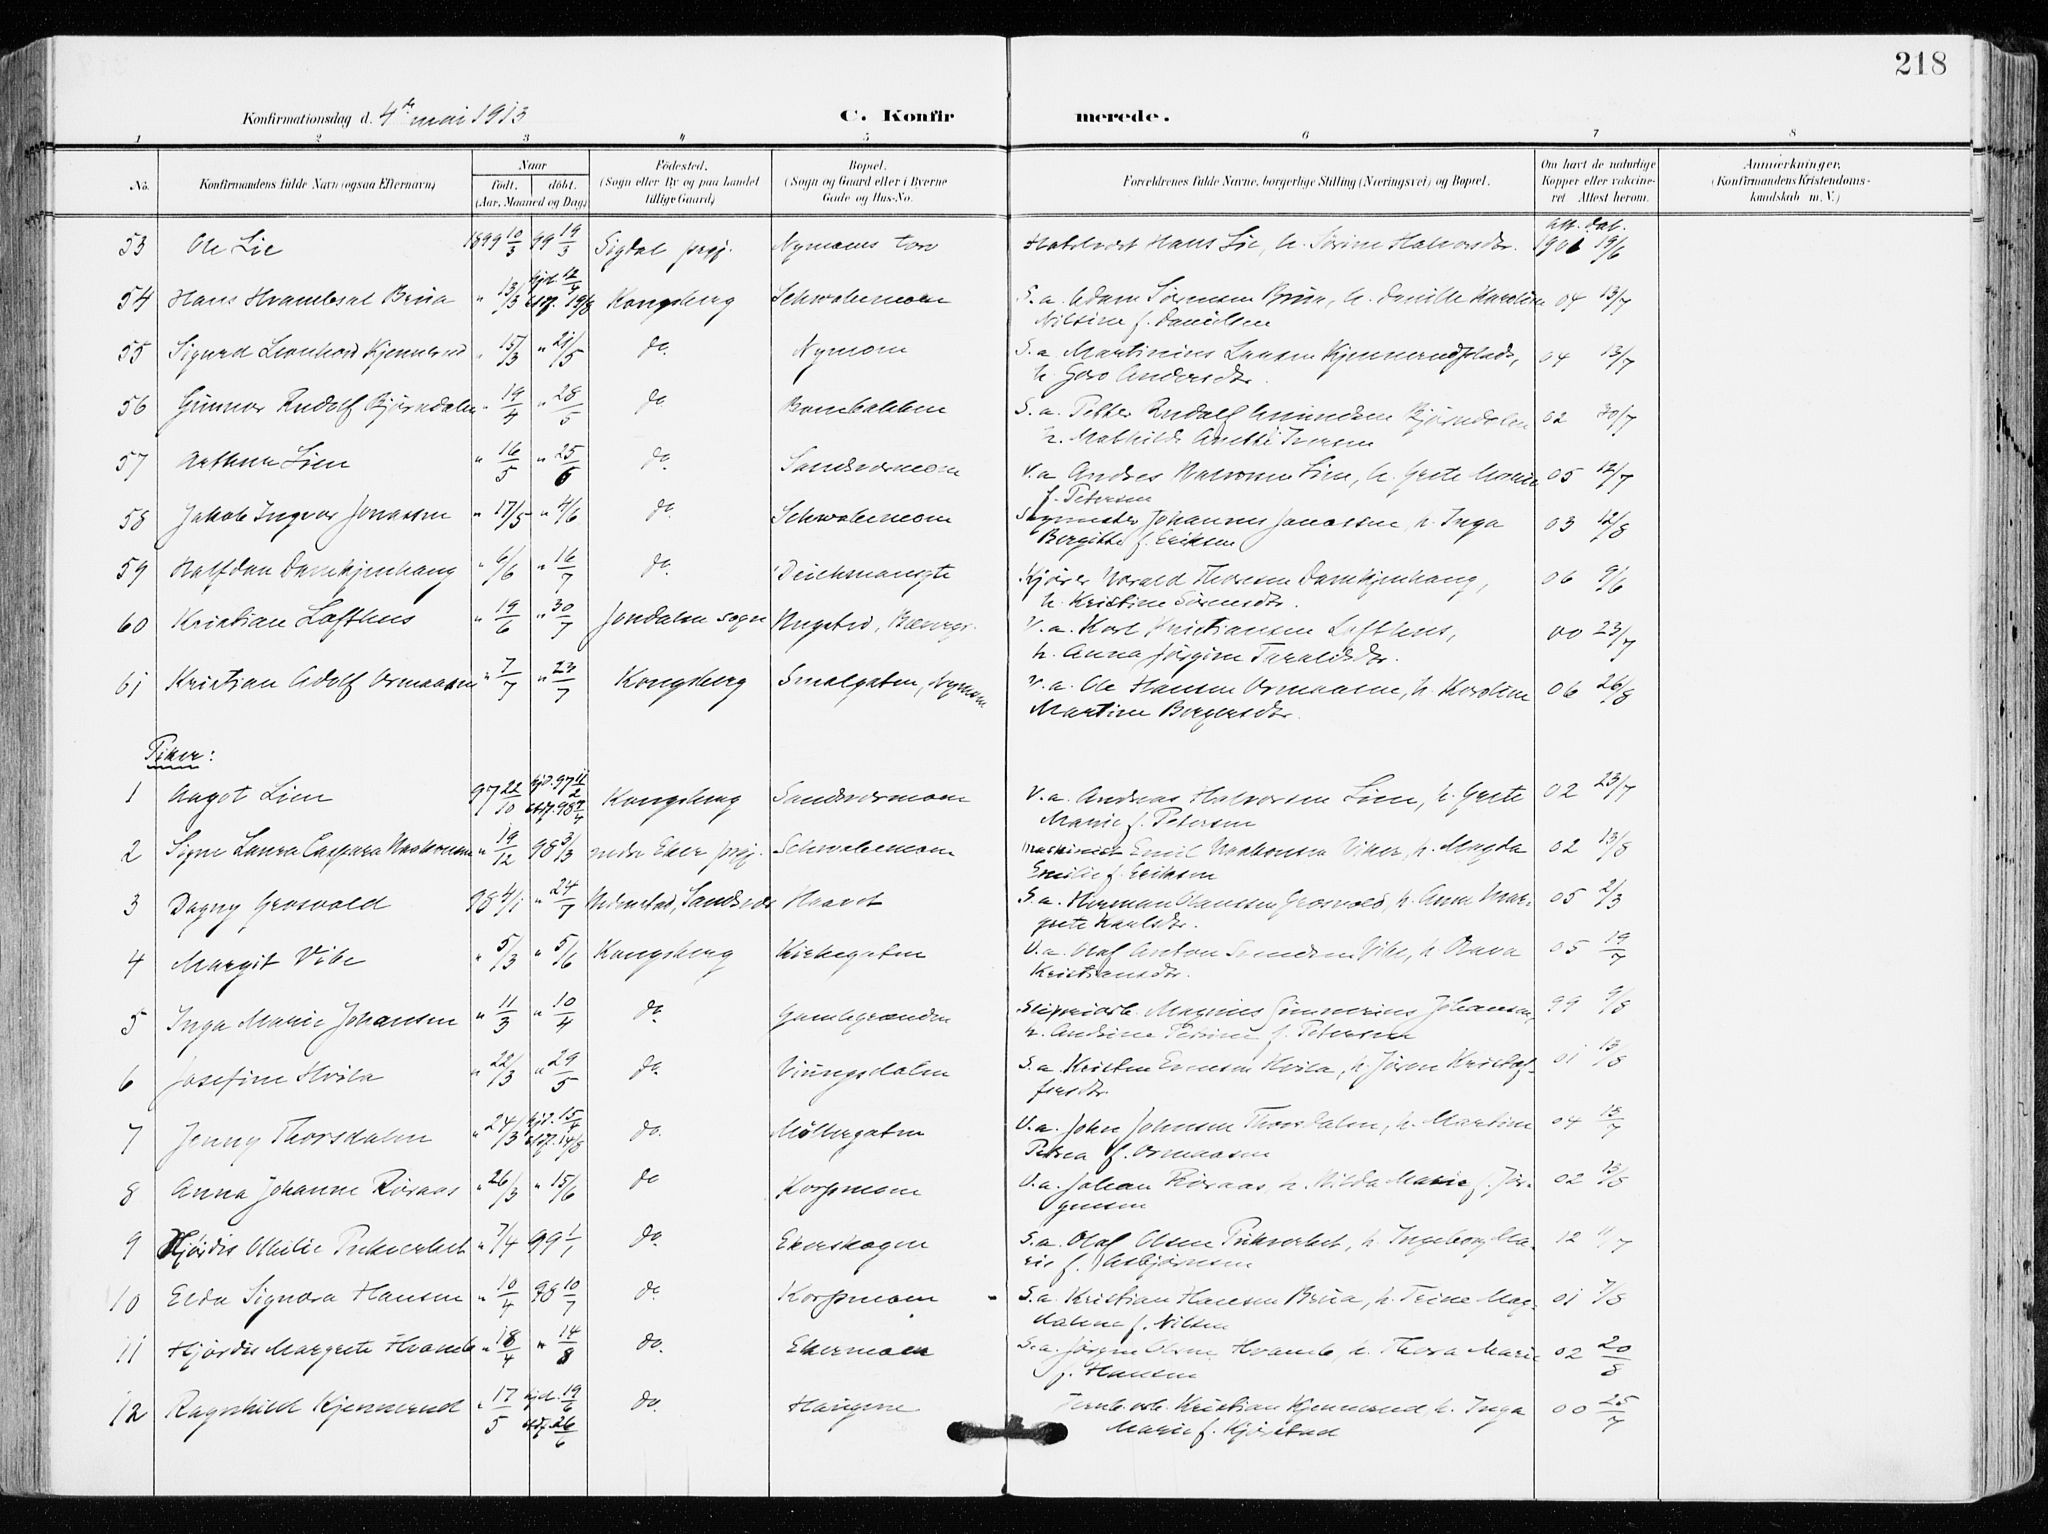 218
Konfirmationsdag d. 4de mai 1913
C. Konfirmerede.
1 2 3 4 5 6 7 8
No. Konfirmandens fulde Navn (ogsaa Efternavn) Naar født. døbt. (Aar, Maaned og Dag) Fødested. (Sogn eller By og paa Landet tillige Gaard) Bopæl. (Sogn og Gaard eller i Byerne Gade og Hus-No. Forældrenes fulde Navne, borgerlige Stilling (Næringsvei) og Bopæl. Om havt de naturlige Kopper eller vakcineret Attest herom. Anmærkninger, (Konfirmandens Kristendomskundskab m. V.)
att. dat.
53 Ole Lie 1899 10/3 99 19/3 Sigdal prgj. Nymoens torv Hans Lie, h. Sørine Halvorsdtr. 1901 19/6
54 Hans Hvambsal Brua " 13/3 hjd. 12/4 Kongsberg Schwabemoen S.a. Adam Sørensen Brua, h. Danille Karoline 04 13/7
Nilsine f. Danielsen
55 Sigurd Leonhard Kjennerud " 15/3 " 21/5 do. Nymoen S.a. Martinius Larsen Kjennerudplads, 04 13/7
h. Goro Andersdtr.
56 Gunnar Rudolf Bjørndalen " 19/4 " 28/5 do Bombakken S.a. Petter Rudolf Amundsen Bjørndalen 02 30/7
h. Mathilde Anette Iversen
57 Arthur Lien " 16/5 " 25/6 do. Sandsværmoen V.a. Andres Halvorsen Lien, h. Grete Marie 05 12/7
f. Petersen
58 Jakob Ingvar Jonassen " 17/5 " 4/6 do Schwabemoen Sagmester Johannes Jonassen, h. Inga 03 12/8
Bergitte f. Eriksen
59 Halfdan Damkjenhaug " 6/6 " 16/7 do. Deichmansgte Kjører Harald Thoresen Damkjenhaug, 06 9/6
h. Kristine Sørensdtr.
60 Kristian Lofthus " 19/6 " 30/7 Jondalen sogn V.a. Karl Kristiansen Lofthus, 00 23/7
h. Anna Jørgine Taraldsdtr.
61 Kristian Adolf Ormaasen " 7/7 " 23/7 Kongsberg Smalgaten, Nymoen V.a. Ole Hansen Ormaasen, h. Karoline 06 26/8
Martine Borgersdtr.
Piker:
1 Aagot Lien 97 22/10 hjd. 97 11/2 Kongsberg Sandsværmoen V.a. Andreas Halvorsen Lien, h. Grete 02 23/7
Marie f. Petersen
2 Signe Laura Caspara Haakonsen " 19/12 98 3/3 nedre Eker prgj. Schwabemoen Maskinist Emil Haakonsen Viker, h. Magda 02 13/8
Emilie f. Eriksen
3 Dagny Grosvold 98 4/1 " 24/7 Hedenstad, Sandsvær Haavet S.a. Herman Olaussen Grosvold, h. Anne Margrete Karlsdtr. 05 2/3
4 Margit Vibe " 5/3 " 5/6 Kongsberg Kirkegaten V.a. Olaf Anton Vibe, h. 05 19/7
Kristiansdtr.
5 Inga Marie Johansen " 11/3 " 10/4 do. Gamlegrænden Sliperiarb. Magnus Gunnerius Johansen, 99 9/8
h. Andrine Petrine f. Petersen
6 Josefine Hvila " 22/3 " 29/5 do. Vinnesdalen S.a. Kristen Evensen Hvila, h. Jøran Kristoffersdtr. 01 13/8
7 Jenny Thorsdalen " 24/3 hjd. 15/4 stdf. 14/8 do. Møllergaten V.a. John Johnsen Thorsdalen, h. Martine 04 13/7
Petrea f. Ormaasen
8 Anna Johanne Røraas " 26/3 " 15/6 do Korpmoen V.a. Johan Røraas, h. Hilda Marie f. Jørgensen 02 13/8
9 Hjørdis Otilie Pukverket " 7/4 99 1/1 do. Ekerskogen S.a. Olaf Olsen Pukverket, h. Ingeborg Marie f. Asbjørnsen 12 11/7
10 Elda Signora Hansen " 10/4 98 10/7 do. Korpmoen S.a. Kristian Hansen Brua, h. Trine Magdalene f. Nilsen 01 7/8
11 Hjørdis Margrete Hvamb " 18/4 " 14/8 do. Ekermoen S.a. Jørgen Olsen Hvamb, h. Thora Marie 02 20/8
f. Hansen
12 Ragnhild Kjennerud " 17/5 hjd. 19/6 stdf. 26/6 do. Haugene Jernb.arb. Kristian Kjennerud h. Inga 00 25/7
Marie f. Kjørstad